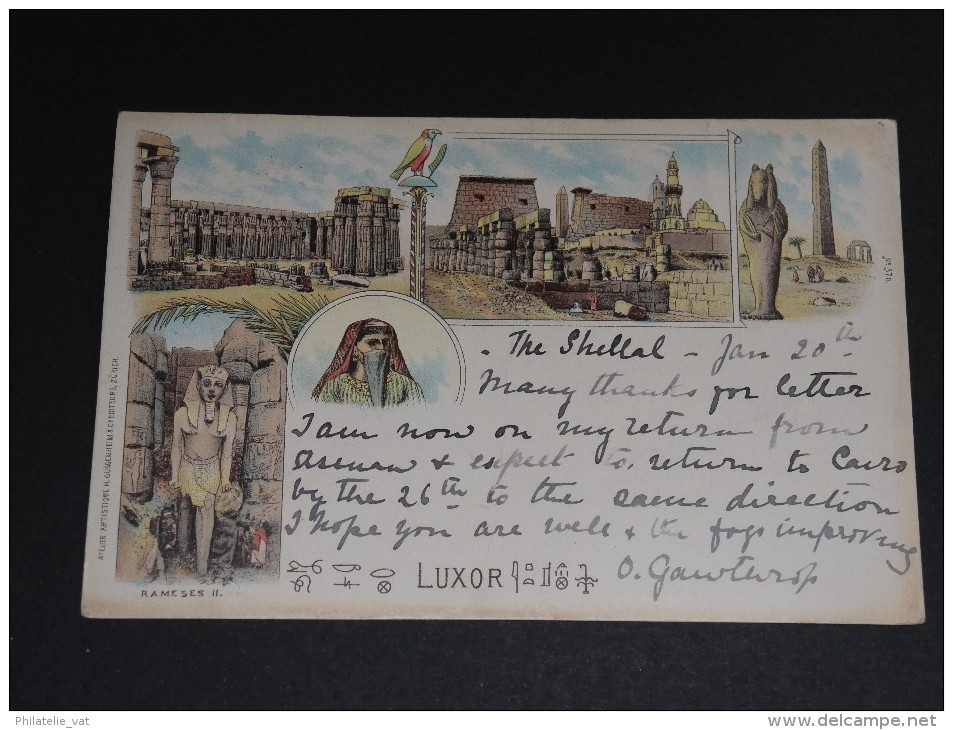 The Shellal - Jan 20th
Many thanks for letter
I am now on my return from
Assuan & expect to return to Cairo
by the 26th to the same direction
I hope you are well & the fogs improving
O. Gawthrop
RAMESES II.
LUXOR
ATELIER ARTISTIQUE H. GUGGENHEIM & Co. EDITEURS, ZÜRICH.
No 3711
Philatelie_vat
www.delcampe.net